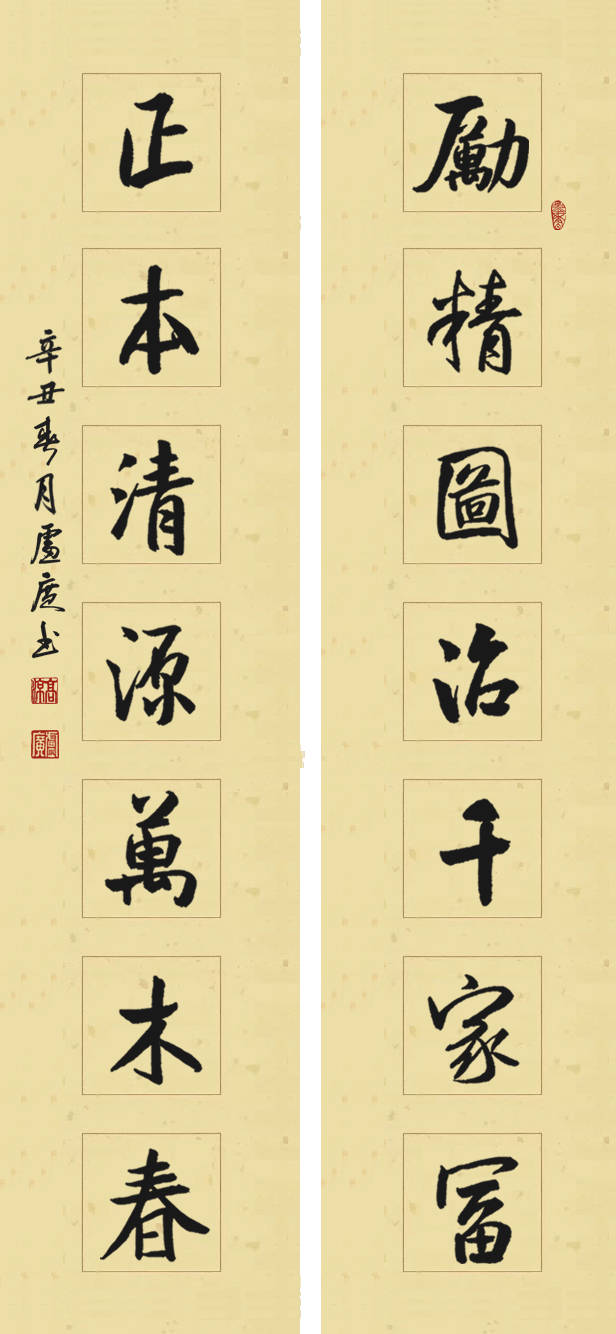 勵精圖治千家富
正本清源萬木春
辛丑春月盧廣书